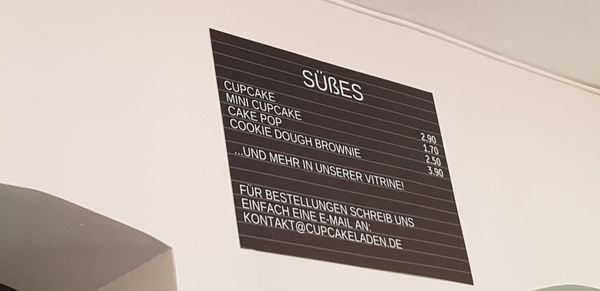 SÜßES
CUPCAKE 2.90
MINI CUPCAKE 1.70
CAKE POP 2.50
COOKIE DOUGH BROWNIE 3.90
...UND MEHR IN UNSERER VITRINE!
FÜR BESTELLUNGEN SCHREIB UNS
EINFACH EINE E-MAIL AN:
KONTAKT@CUPCAKELADEN.DE